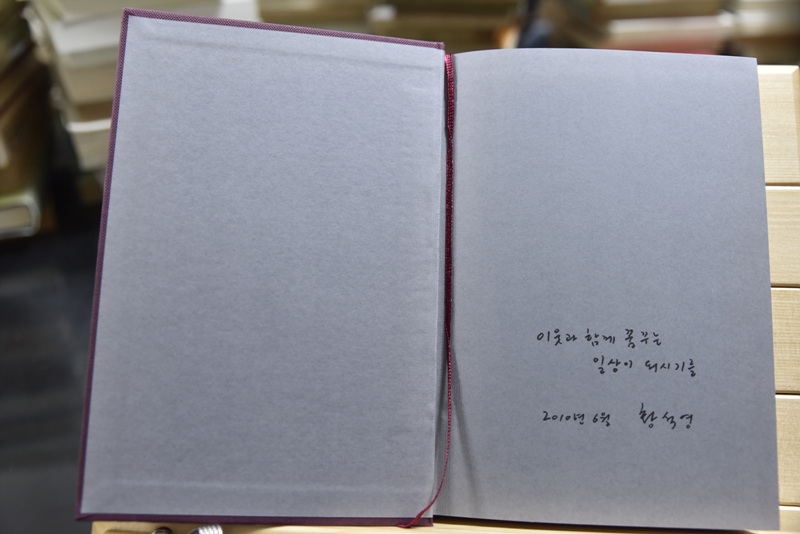 이웃과 함께 꿈꾸는
일상이 되시기를
2010년 6월 황석영